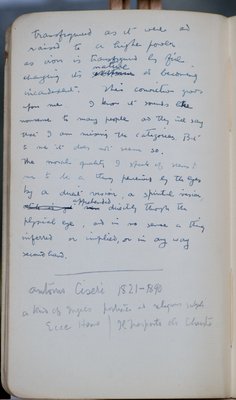 transfigured as it were and
raised to a higher power
as iron is transfigured by fire
changing its nature & becoming
incandescent. This conviction grows
upon me. I know it sounds like
nonsense to many people as they will say
that I am mixing the categories. But
to me it does not seem so.
The moral quality I speak of, seems
to me to be a thing perceived by the eyes
by a direct vision, a spiritual vision
apprehended directly through the
physical eye, and in no sense a thing
inferred or implied, or in any way
second hand.
Antonio Ciseri 1821-1890
a kind of Ingres portraits and religious subjects
Ecce Homo / Il Trasporto di Christo